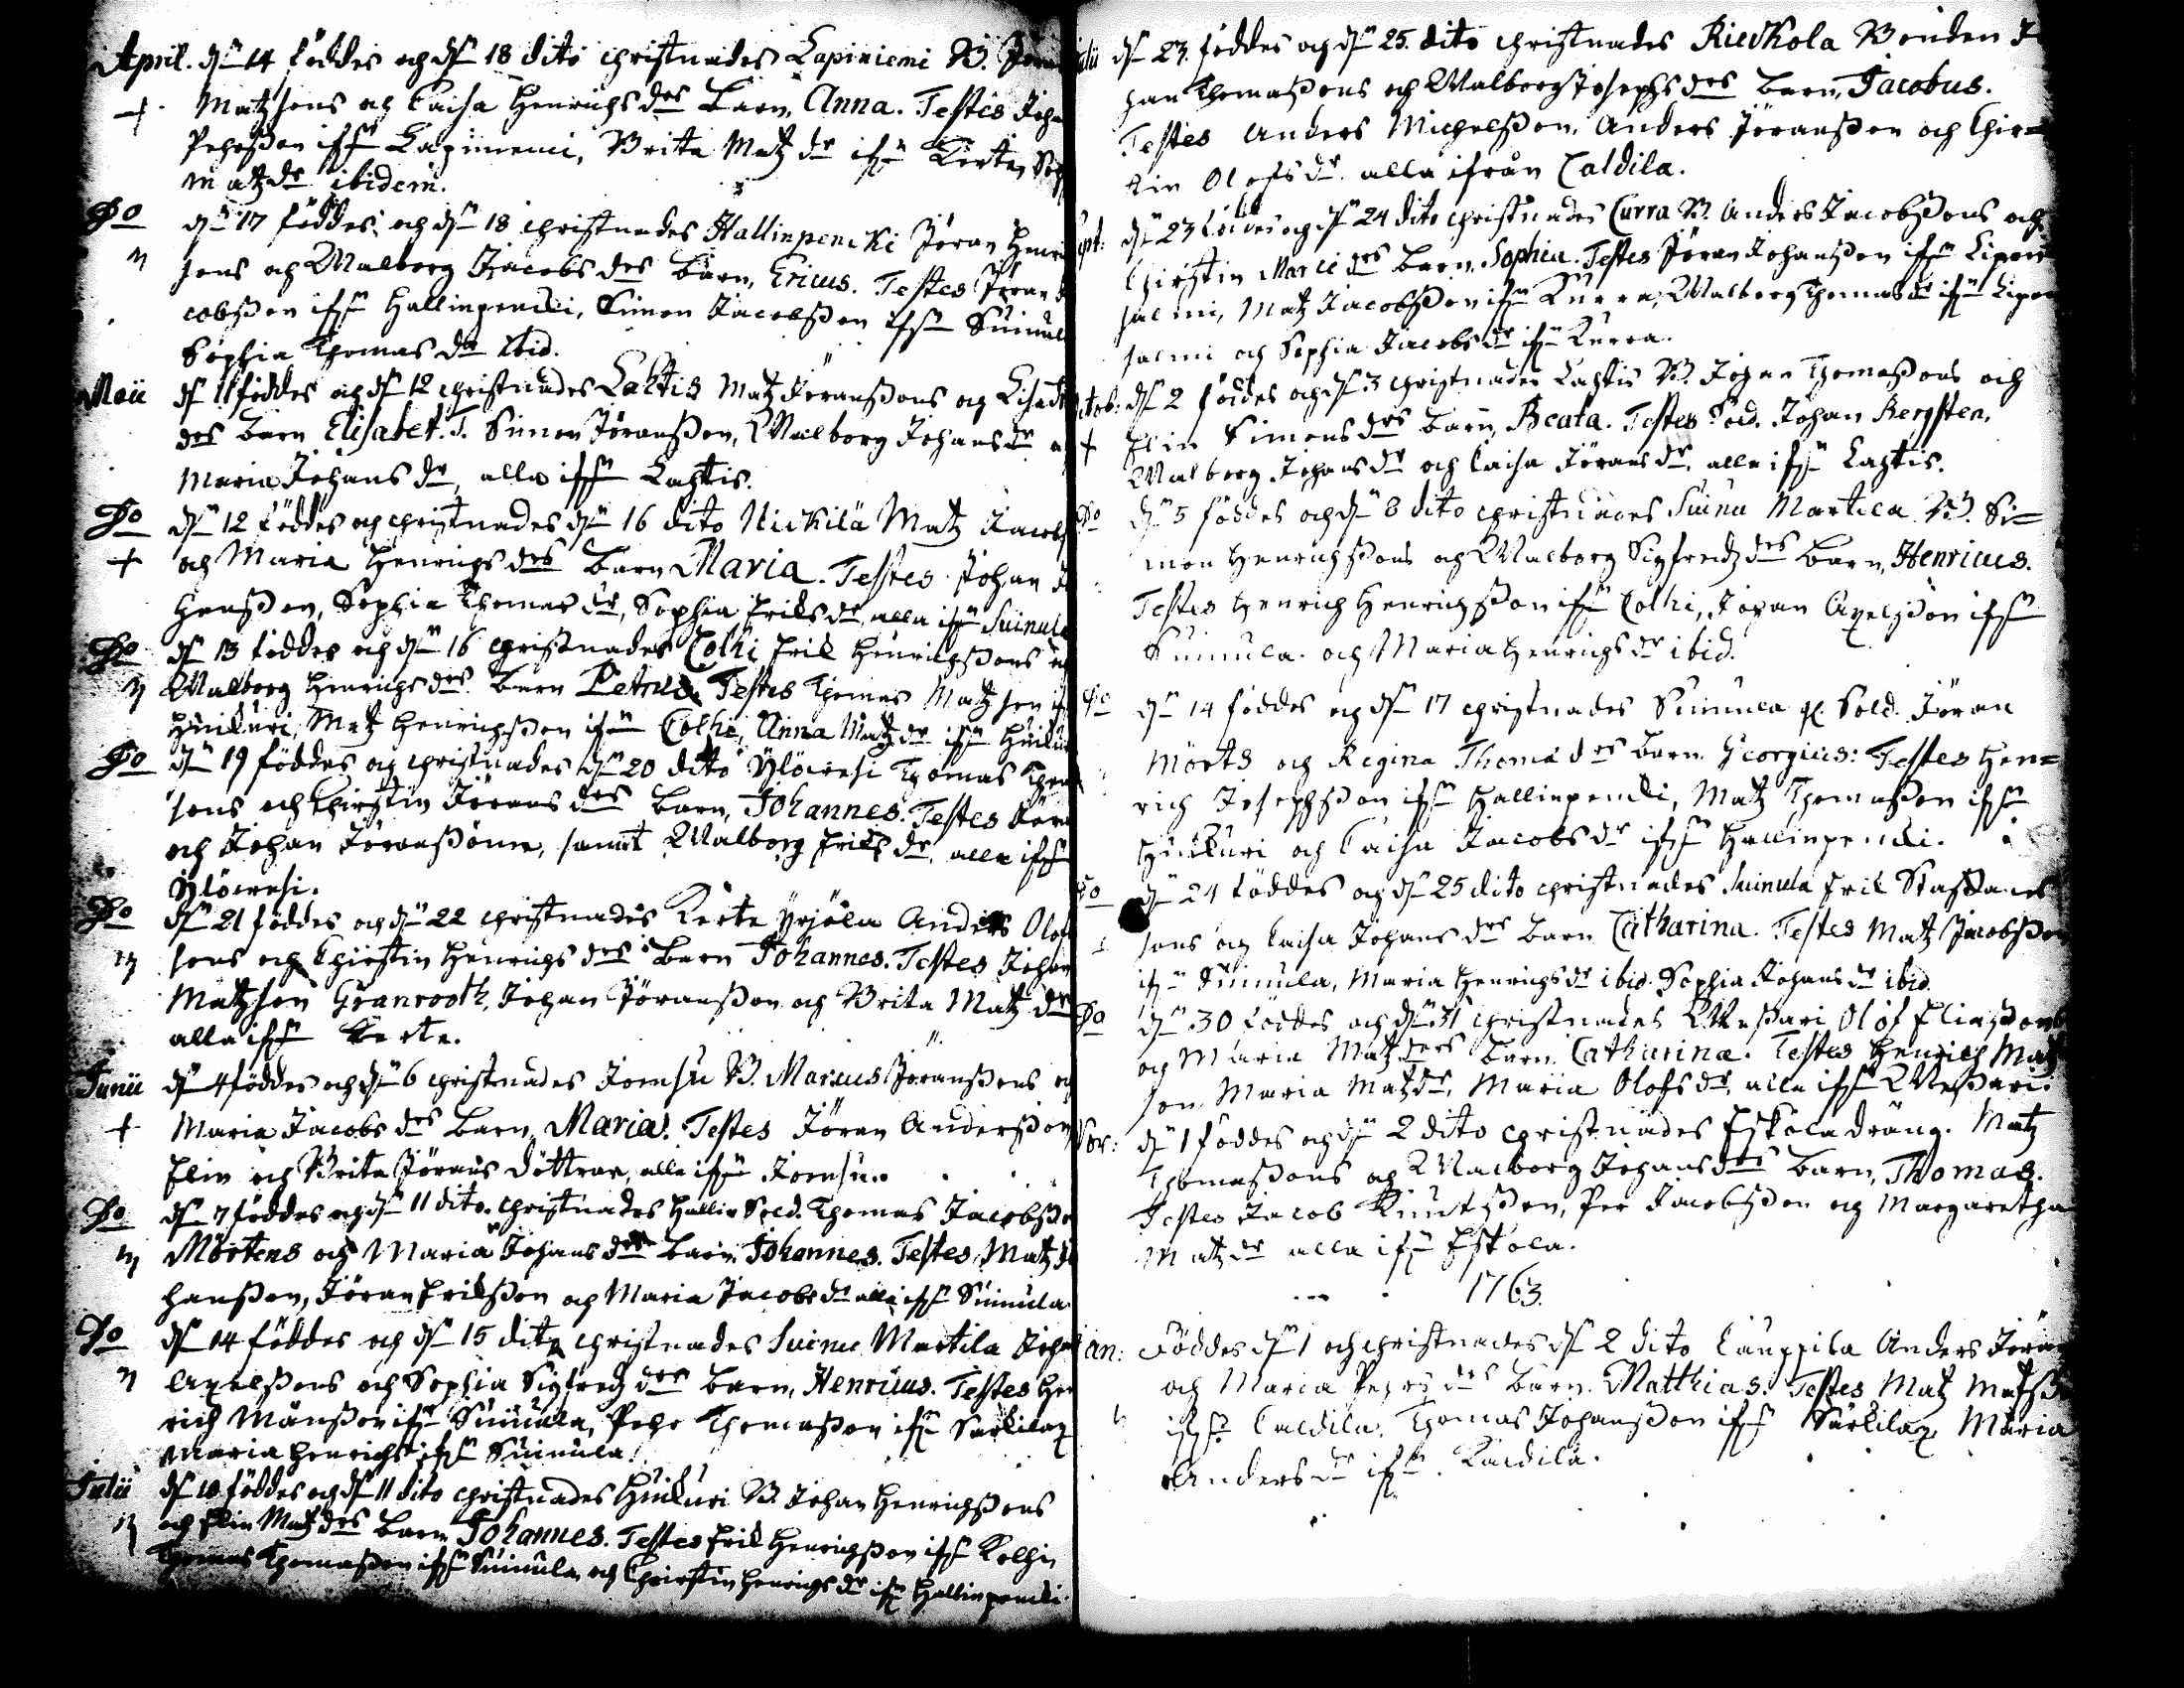 April. d:n 14 föddes och d:n 18 dito christnades Lapiniemi B.
+ Matzsons och Caisa Henrichs d:rs Barn, Anna. Testes
Pehrsson if:n Lapiniemi, Brita Matz d:r if:n Kerte,
Matz d:r ibidem.
D:o d:n 17 föddes och d:n 18 christnades Hallinpencki Jöran
sons och Walborg Jacobs d:rs Barn, Ericus. Testes Jöran
cobsson if:n Hallinpencki, Simon Jacobsson if:n
Sophia Thomas d:r ibid.
Maii d:n 11 föddes och d:n 12 christnades Lahtis Matz Jöranssons och
d:rs Barn Elisabet. T. Simon Jöransson, Walborg Johans d:r
Maria Johans d:r, alla if:n Lahtis.
D:o d:n 12 föddes och christnades d:n 16 dito Nickilä Matz
+ och Maria Henrichs d:rs Barn Maria. Testes Johan
hansson, Sophia Thomas d:r, Sophia Eriks d:r, alla if:n
D:o d:n 13 föddes och d:n 16 christnades Colhi Erik Henrichssons
Walborg Henrichs d:rs Barn Petrus. Testes Thomas Matzson
Huikuri, Matz Henrichsson if:n Colhi, Anna Matz d:r if:n
D:o d:n 19 föddes och christnades d:n 20 dito Ylöinesi Thomas
sons och Chirstin Jörans d:rs Barn, Johannes. Testes
och Johan Jöranssöner, samt Walborg Eriks d:r, alla if:n
Ylöinesi.
D:o d:n 21 föddes och d:n 22 christnades Kerte Yrjölä Anders
sons och Chirstin Henrichs d:rs Barn Johannes. Testes Johan
Matzson Granrooth, Johan Jöransson och Brita Matz d:r
alla if:n Kerte.
Junii d:n 4 föddes och d:n 6 christnades Joensu B. Marcus Jöranssons
+ Maria Jacobs d:rs Barn, Maria. Testes Jöran Andersson
Elin och Brita Jörans döttrar, alla if:n Joensu.
D:o d:n 7 föddes och d:n 11 dito christnades Hallin Sold. Thomas
Mörtens och Maria Johans d:rs Barn Johannes. Testes Matz
hansson, Jöran Eriksson och Maria Jacobs d:r alla if:n Suinula
D:o d:n 14 föddes och d:n 15 dito christnades Suinu Martila
Axelssons och Sophia Sigfredz d:rs Barn, Henricus. Testes
rich Månsson if:n Suinula, Pehr Thomasson if:n Särkilax
Maria Henrichs d:r if:n Suinula.
Julii d:n 10 föddes och d:n 11 dito christnades Huikuri B. Johan Henrichssons
och Elin Matz d:rs Barn Johannes. Testes Erik Henrichsson if:n Kolhi,
Thomas Thomasson if:n Suinula och Chirstin Henrichs d:r if:n Hallinpencki.
d:n 23. föddes och d:n 25. dito christnades Rieckola Bonden
han Thomassons och Walborg Josephs d:rs Barn, Jacobus.
Testes Anders Michelsson, Anders Jöransson och Chir=
stin Olofs d:r. alla ifrån Caldila.
d:n 23 föddes och d:n 24 dito christnades Curra B. Anders Jacobssons och
Chirstin Marci d:rs Barn, Sophia. Testes Jöran Johansson if:n
salmi, Matz Jacobsson if:n Kurra, Walborg Thomas d:r if:n
salmi och Sophia Jacobs d:r if:n Kurra.
d:n 2 föddes och d:n 3 christnades Lahtis B. Johan Thomassons och
+ Elin Simons d:rs Barn, Beata. Testes Sold. Johan Bergsten,
Walborg Johans d:r och Caisa Jörans d:r, alla if:n Lahtis.
D:o d:n 5 föddes och d:n 8 dito christnades Suinu Martila B. Si=
mon Henrichssons och Walborg Sigfredz d:rs Barn, Henricus.
Testes Henrich Henrichsson if:n Colhi, Johan Axelsson if:n
Suinula och Maria Henrichs d:r ibid.
D:o d:n 14 föddes och d:n 17 christnades Suinula Sold. Jöran
Mörts och Regina Thomæ d:rs Barn. Georgius: Testes Hen=
rich Josephsson if:n Hallinpencki, Matz Thomasson if:n
Huikuri och Caisa Jacobs d:r if:n Hallinpencki.
D:o d:n 24 föddes och d:n 25 dito christnades Suinula Erik Staffans
sons och Caisa Johans d:rs Barn Catharina. Testes Matz Jacobsson
if:n Suinula, Maria Henrichs d:r ibid. Sophia Johans d:r ibid.
D:o d:n 30 föddes och d:n 31 christnades Wessari Olof Eliassons
och Maria Matz d:rs Barn. Catharina. Testes Henrich Matz
son, Maria Matz d:r, Maria Olofs d:r, alla if:n Wessari.
Nov: d:n 1 föddes och d:n 2 dito christnades Eskola dräng. Matz
Thomassons och Walborg Johans d:rs Barn, Thomas.
Testes Jacob Knutsson, Per Jacobsson och Margaretha
Matz d:r alla if:n Eskola.
1763.
Jan: Föddes d:n 1 och christnades d:n 2 dito Cauppila Anders
och Maria Pehrs d:rs Barn. Matthias. Testes Matz
if:n Caldila, Thomas Johansson if:n Särkilax, Maria
Anders d:r if:n Kaldila.